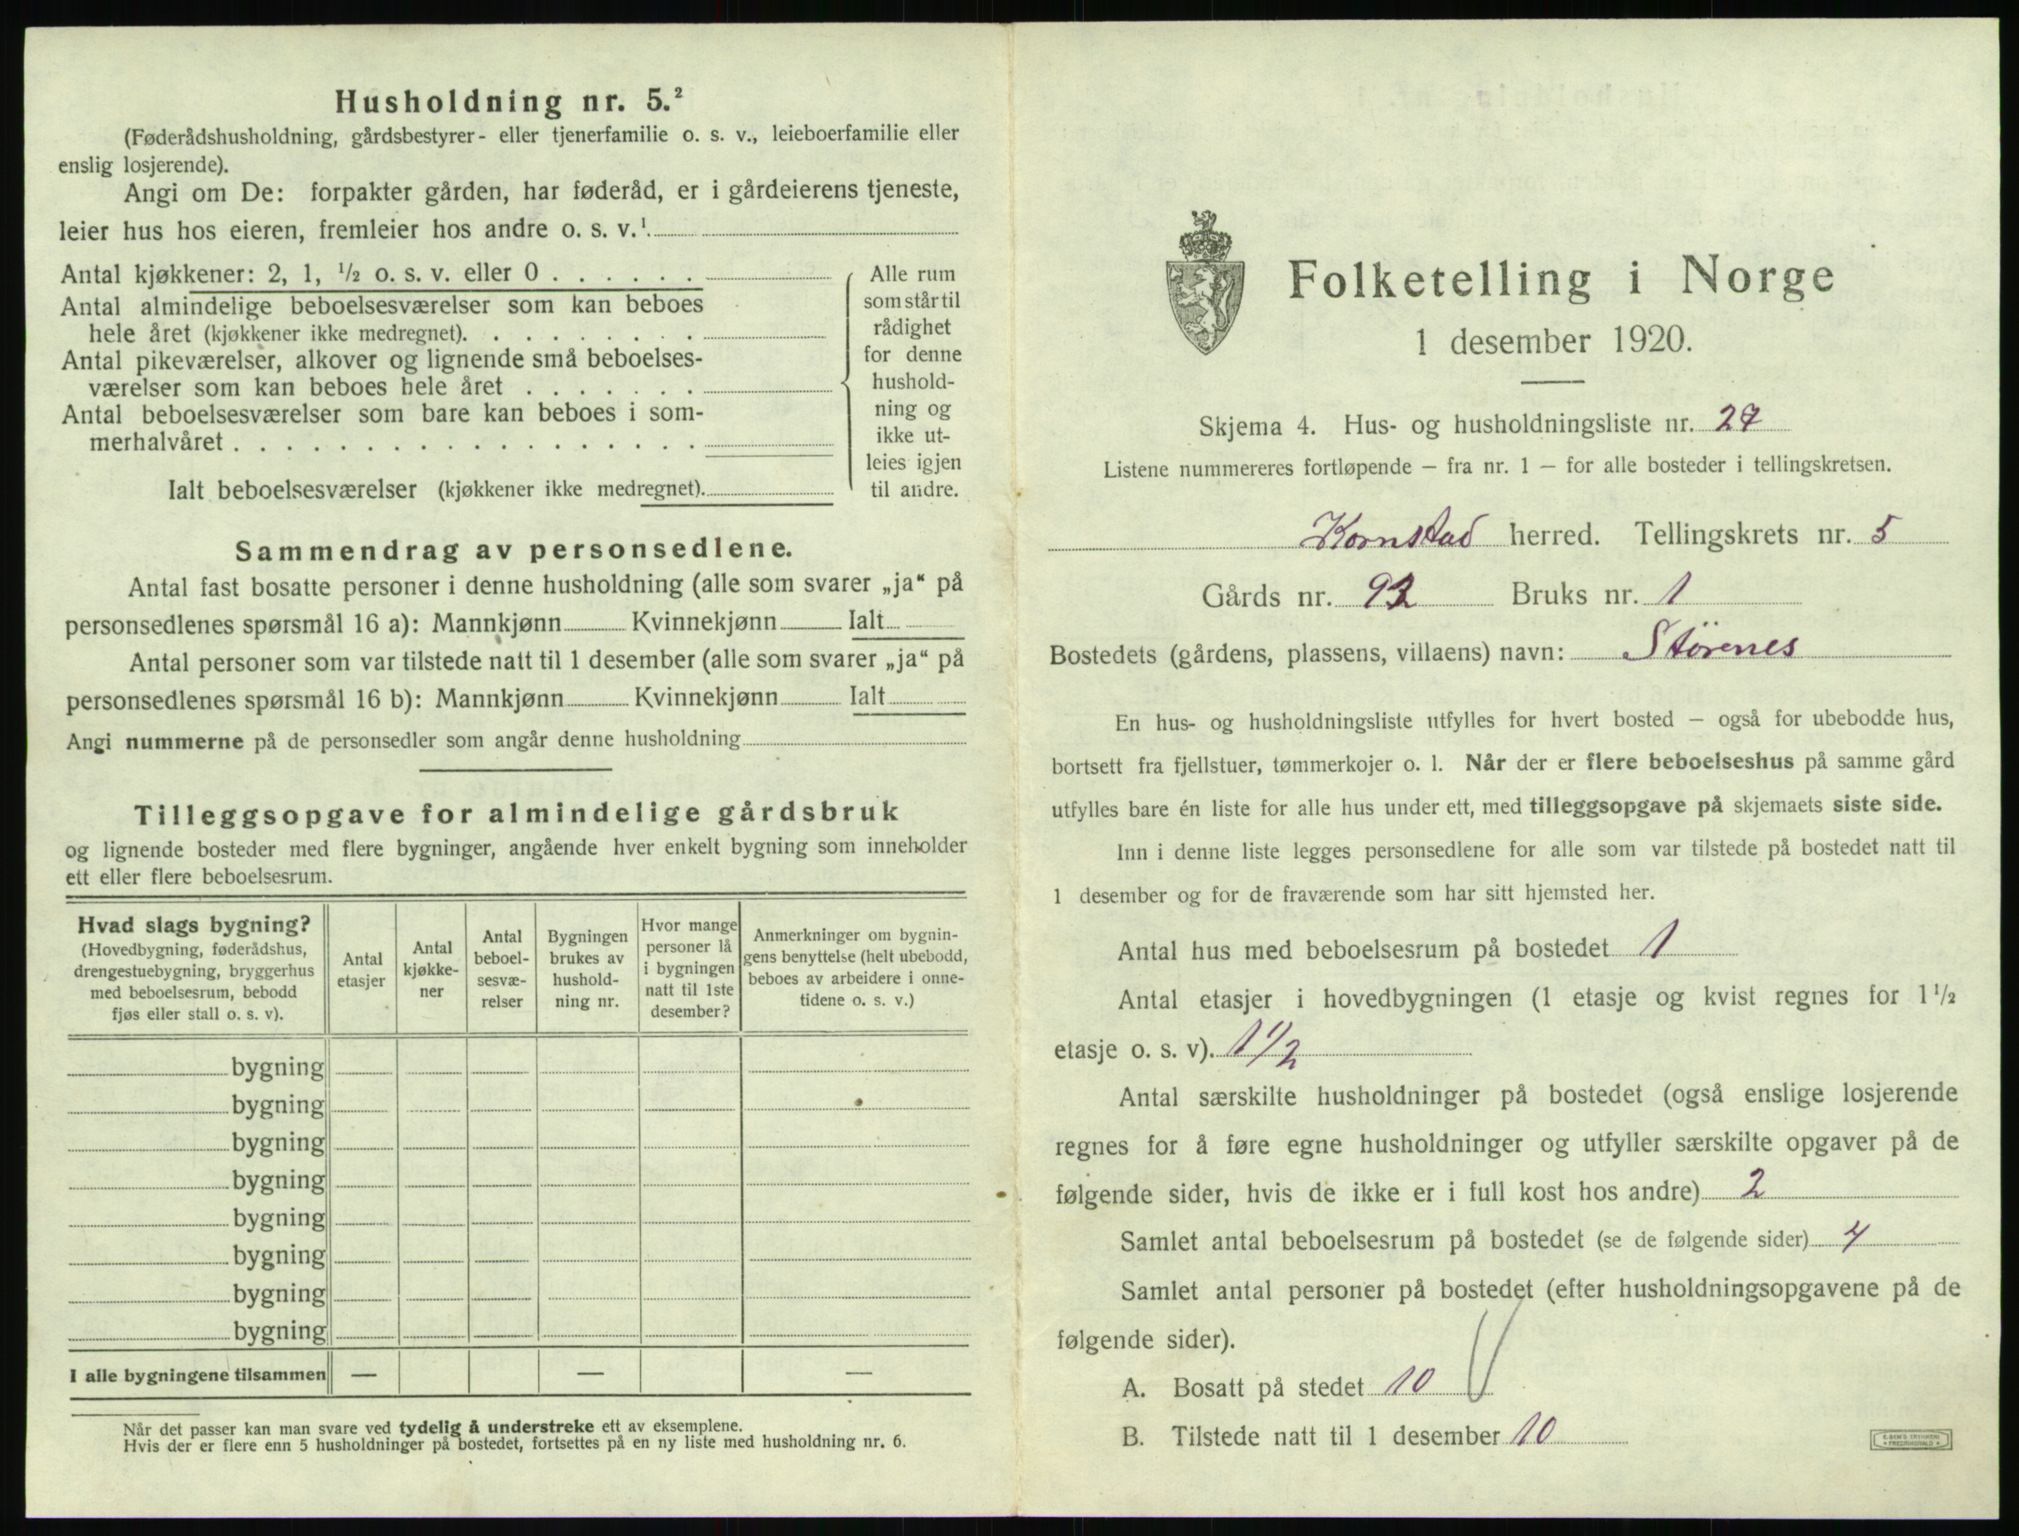 Husholdning nr. 5.²
(Føderådshusholdning, gårdsbestyrer- eller tjenerfamilie o. s. v., leieboerfamilie eller
enslig losjerende).
Angi om De: forpakter gården, har føderåd, er i gårdeierens tjeneste,
leier hus hos eieren, fremleier hos andre o. s. v.¹
Antal kjøkkener: 2, 1, ½ o. s. v. eller 0 . . . . . .
Antal almindelige beboelsesværelser som kan beboes
hele året (kjøkkener ikke medregnet). . . . . . . . .
Antal pikeværelser, alkover og lignende små beboelses-
værelser som kan beboes hele året . . . . . . .
Antal beboelsesværelser som bare kan beboes i som-
merhalvåret . . . . . . . . . . . . . . . . . .
Ialt beboelsesværelser (kjøkkener ikke medregnet).
Alle rum
som står til
rådighet
for denne
hushold-
ning og
ikke ut-
leies igjen
til andre.
Sammendrag av personsedlene.
Antal fast bosatte personer i denne husholdning (alle som svarer „ja“ på
personsedlenes spørsmål 16 a): Mannkjønn Kvinnekjønn Ialt
Antal personer som var tilstede natt til 1 desember (alle som svarer „ja“ på
personsedlenes spørsmål 16 b): Mannkjønn Kvinnekjønn Ialt
Angi nummerne på de personsedler som angår denne husholdning
Tilleggsopgave for almindelige gårdsbruk
og lignende bosteder med flere bygninger, angående hver enkelt bygning som inneholder
ett eller flere beboelsesrum.
Hvad slags bygning?
(Hovedbygning, føderådshus,
drengestuebygning, bryggerhus
med beboelsesrum, bebodd
fjøs eller stall o. s. v).
Antal
etasjer
Antal
kjøkke-
ner
Antal
beboel-
sesvæ-
relser
Bygningen
brukes av
hushold-
ning nr.
Hvor mange
personer lå
i bygningen
natt til 1ste
desember?
Anmerkninger om bygnin-
gens benyttelse (helt ubebodd,
beboes av arbeidere i onne-
tidene o. s. v.)
bygning
bygning
bygning
bygning
bygning
bygning
bygning
bygning
I alle bygningene tilsammen — — —
Når det passer kan man svare ved tydelig å understreke ett av eksemplene.
Hvis der er flere enn 5 husholdninger på bostedet, fortsettes på en ny liste med husholdning nr. 6.
Folketelling i Norge
1 desember 1920.
Skjema 4. Hus- og husholdningsliste nr. 27
Listene nummereres fortløpende – fra nr. 1 – for alle bosteder i tellingskretsen.
Kornstad herred. Tellingskrets nr. 5
Gårds nr. 92 Bruks nr. 1
Bostedets (gårdens, plassens, villaens) navn: Störenes
En hus- og husholdningsliste utfylles for hvert bosted – også for ubebodde hus,
bortsett fra fjellstuer, tømmerkojer o. l. Når der er flere beboelseshus på samme gård
utfylles bare én liste for alle hus under ett, med tilleggsopgave på skjemaets siste side.
Inn i denne liste legges personsedlene for alle som var tilstede på bostedet natt til
1 desember og for de fraværende som har sitt hjemsted her.
Antal hus med beboelsesrum på bostedet 1
Antal etasjer i hovedbygningen (1 etasje og kvist regnes for 1½
etasje o. s. v). 1 1/2
Antal særskilte husholdninger på bostedet (også enslige losjerende
regnes for å føre egne husholdninger og utfyller særskilte opgaver på de
følgende sider, hvis de ikke er i full kost hos andre) 2
Samlet antal beboelsesrum på bostedet (se de følgende sider) 4
Samlet antal personer på bostedet (efter husholdningsopgavene på de
følgende sider).
A. Bosatt på stedet 10
B. Tilstede natt til 1 desember 10